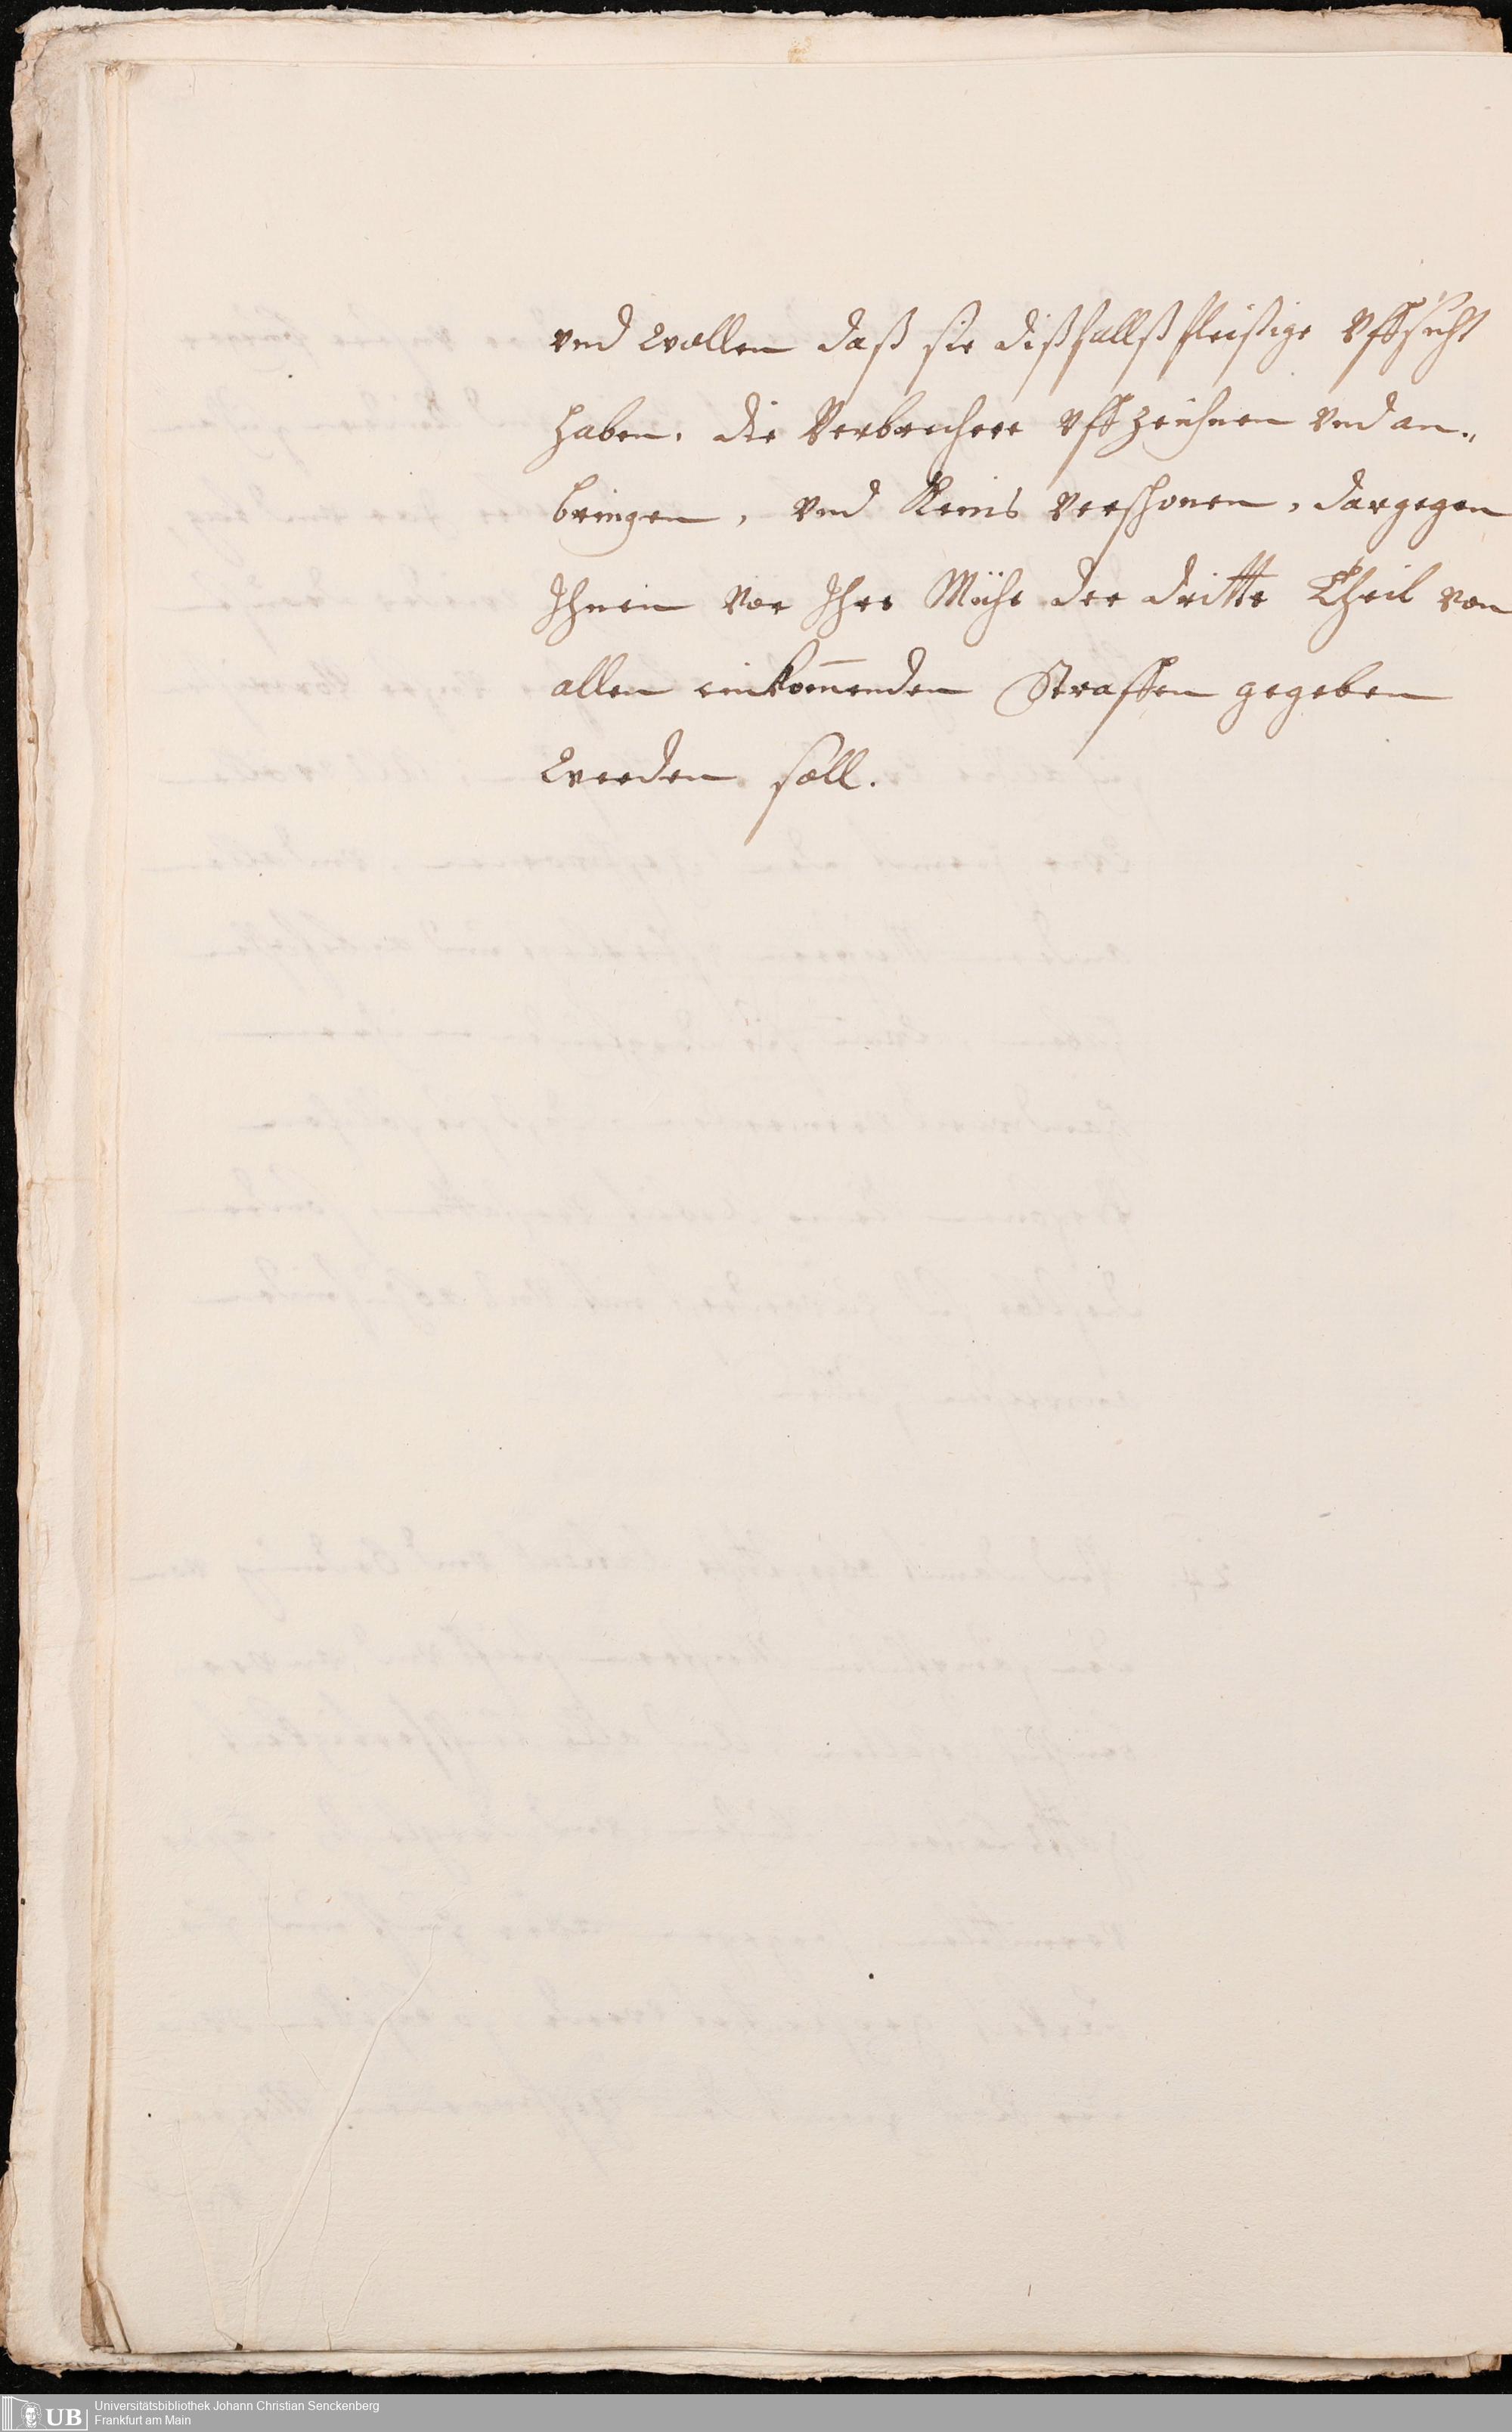 vnd wollen daß sie dißfallß fleißige Vffsicht
haben, die Verbrechere Vffzeichnen vnd an„
bringen, vnd Keins verschonen, dargegen
Ihnen vor Ihre Mühe der dritte Theil von
allen einkom̄enden Straffen gegeben
werden soll.
UB Universitätsbibliothek Johann Christian Senckenberg
Frankfurt am Main